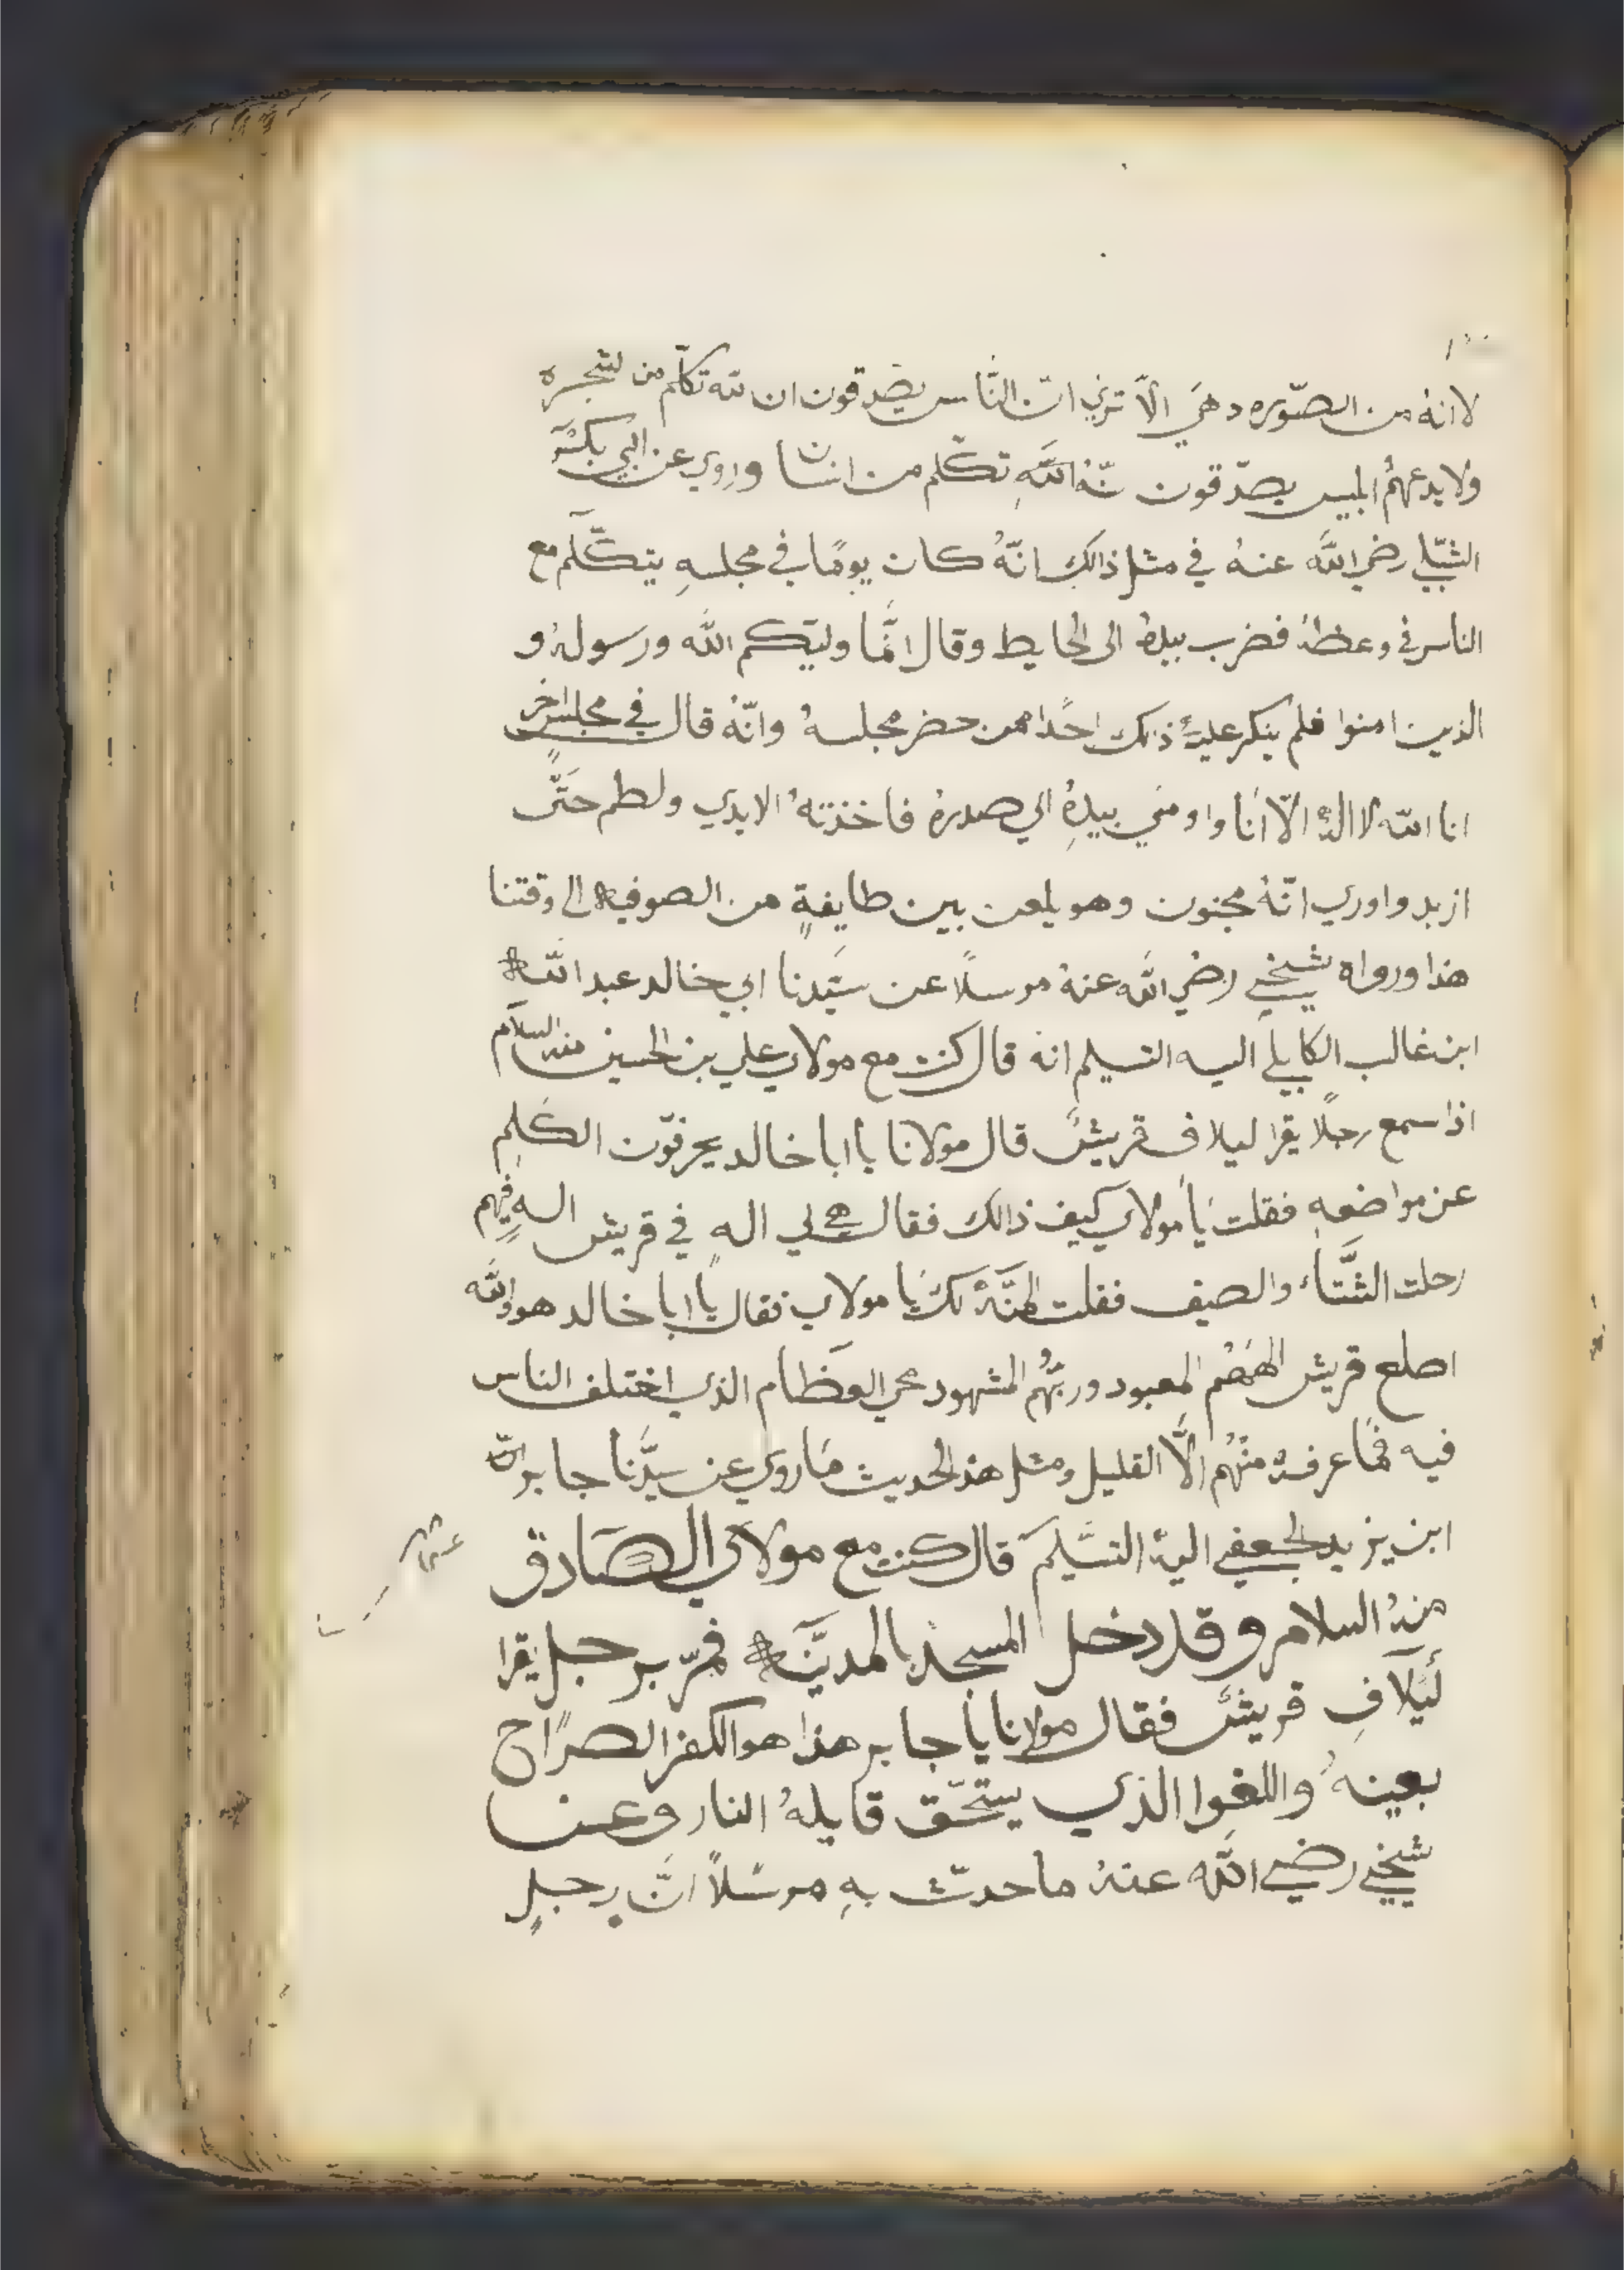 لانه من الصّوره وهي الّا تري انّ النّاس يصدقون ان لله تكلّم من لشجره
ولا يدعهم ابليس يصدّقون بّنهُ اللّهِ تكلّم من انسان وروي عن ابي بكر
الشبّلي رضي اللّه عنهُ في مثل ذالك انّهُ كان يومًا في مجلسهِ يتكلّم مع
الناس في وعظهُ فضرب بيدهُ الى الحايط وقال انّما وليّكم اللّه ورسولهُ و
الذين امنوا فلم ينكر عليهُ ذلك احدًا ممن حضر مجلسهُ وانّهُ قال في مجلس اخر
انا اللّه لا الهُ الّا انا واومي بيدهِ الي صدرهُ فاخذتهُ الايدي ولطم حتّى
ازبد واوري انّهُ مجنون وهو يلعن بين طايفةٍ من الصوفيه الى وقتنا
هذا ورواه شيخي رضي اللّه عنهُ مرسلًا عن سيّدنا ابي خالد عبد اللّه
ابن غالب الكابلي اليه التسليم انه قال كنت مع مولاي علي بن الحسين منه السلام
اذا سمع رجلًا يقرا ليلاف قريش قال مولانا يا ابا خالد يحرفوّن الكلم
عن مواضعهِ فقلت يا مولاي كيف ذالك فقال لي الهِ في قريش الهِ فيهم
رحلت الشّتاء والصيف فقلت المنّهُ لك يا مولاي فقال يا ابا خالد هو واللّه
اصلع قريش الههم المعبود وربّهم المشهود محي العظام الذي اختلف الناس
فيه فما عرفهُ منهم الّا القليل ومثل هذ الحديث ما روي عن سيّدنا جابر
ابن يزيد الجعفي اليهُ التسليم قال كنت مع مولاي الصادق
منهُ السلام وقد دخل المسجد بالمدينه فمرّ برجل يقرا
ليلافِ قريش فقال مولانا يا جابر هذا هو الكفر الصراح
بعينهُ واللغوا الذي يستحّق قايلهُ النار وعن
شيخي رضي اللّه عنهُ ما حدّث بهِ مرسلًا انّ رجلٍ